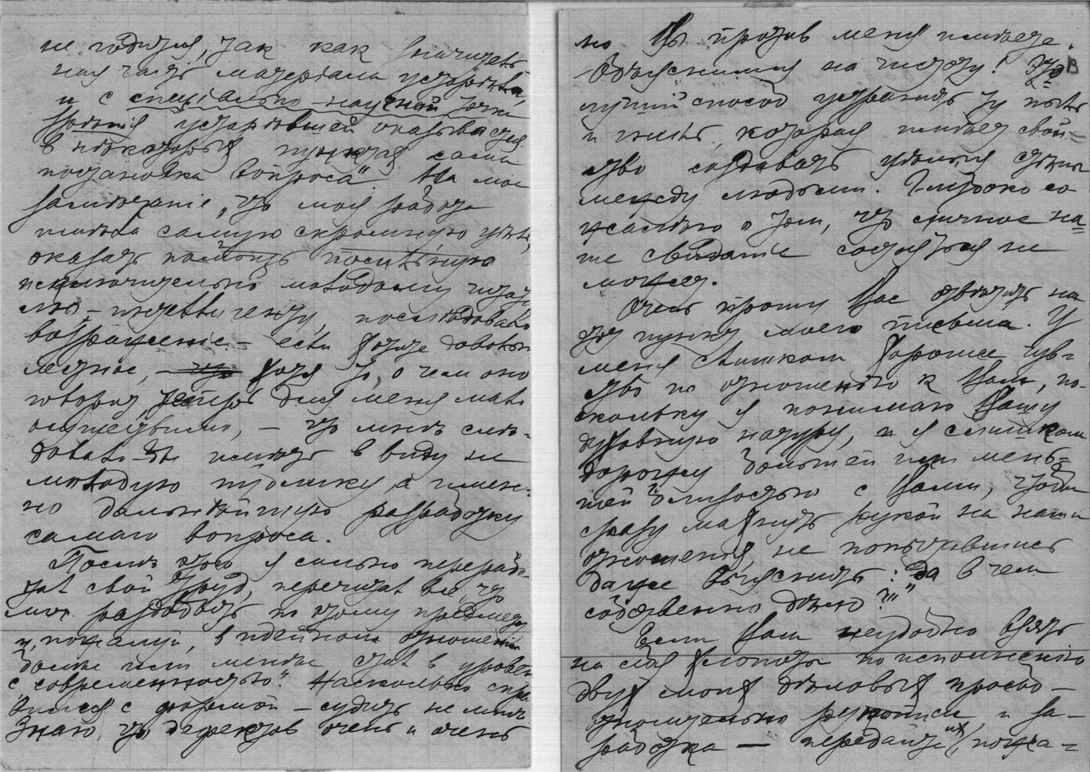 не годится, так как значитель
ная часть матерьяла устарѣла,
и с спецiально-научной точки
зрѣнiя устарѣвшей оказывается
в нѣкоторых пунктах сама
постановка вопроса". На мое
замѣчанiе, что моя работа
имѣла самую скромную цѣль,
оказать помощь посильную
исключительно молодому читате
лю – интеллигенту, послѣдовало
возраженiе – есть тоже довольно
меткое, – хотя то, о чем оно
говорит, теперь для меня мало
осуществимо, – что мнѣ слѣ-
довало бы имѣть в виду не
молодую публику, а имен-
но дальнѣйшую разработку
самаго вопроса.
Послѣ этого я сильно перерабо
тал свой труд, перечитал все, что
мог раздобыть по этому предмету
и, пожалуй, в идейном отношенiи
более или менѣе стал в уровень
с современностью. Насколько спра
вился с формой – судить не мнѣ.
Знаю, что дефектов очень и очень
но Вы против меня имѣете.
Объяснимся на чистоту! Это
лучшiй способ устранить ту
которая имѣет свой-
ство создавать стѣны
между людьми. Глубоко со
жалѣю о том, что личное на
ше свиданiе состояться не
может.
Очень прошу Вас отвѣтить на
этот пункт моего письма. У
меня слишком хорошее чув-
ство по отношенiю к Вам, по-
скольку я понимаю Вашу
духовную натуру, и я слишком
дорожу большей или мень-
шей близостью с Вами, чтобы
сразу махнуть рукой на наши
отношенiя, не попытавшись
даже выяснить: "да в чем
собственно дѣло?"
Если Вам неудобно взять
на себя хлопоты по исполненiю
двух моих дѣловых просьб –
относительно рукописи и за-
работка – передайте их пожа=